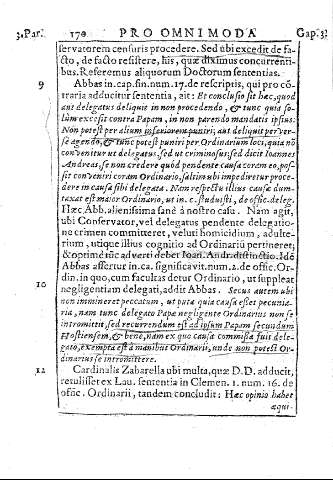 3.Par. 170 PRO OMNIMODA Cap.3.
servatorem censuris procedere. Sed ubi excedit de fa-
cto, de facto resistere, his, quæ diximus concurrenti-
bus. Referemus aliquorum Doctorum sententias.
9 Abbas in.cap.fin.num.17.de rescriptis, qui pro cõ-
traria adducitur sententia, ait: Et conclusio sit hæc, quod
aut delegatus deliquit in non procedendo, & tunc quia so-
lùm excesit contra Papam, in non parendo mandatis ipsius:
Non potest per alium inferiorem puniri; aut deliquit perver-
se agendo, & tunc potest puniri per Ordinarium loci, quia nõ
convenitur ut delegatus, sed ut criminosus: sed dicit Ioannes
Andreas, se non credere quod pendente causa coram eo, pos-
sit conveniri coram Ordinario, saltim ubi impediretur proce-
dere in causa sibi delegata. Nam respectu illius causæ dum-
taxat est maior Ordinario, ut in.c. studuisti, de offic. deleg.
Hæc Abb. alienissima sanè à nostro casu. Nam agit,
ubi Conservator, vel delegatus pendente delegatio-
ne crimen committeret, veluti homicidium, adulte-
rium, utique illius cognitio ad Ordinariũ pertineret;
& optimè tũc adverti deber Ioan. Andr. distinctio. Idẽ
Abbas assertur in.ca. significavit.num.2.de offic. Or-
din. in quo, cum facultas detur Ordinario, ut suppleat
10 negligentiam delegati, addit Abbas. Secus autem ubi
non immineret peccatum, ut puta quia causa est pecunia-
ria, nam tunc delegato Papæ negligente Ordinarius non se
intromittit, sed recurrendum est ad ipsum Papam secundum
Hostiensem, & benè, nam ex quo causa commissa fuit dele-
gato, exempta est à manibus Ordinarii, unde non potest Or-
dinarius se intromittere.
12 Cardinalis Zabarella ubi multa, quæ D.D. adducit,
retulisset ex Lau. sententia in Clemen. 1. num. 16. de
offic. Ordinarii, tandem concludit: Hæc opinio habet
æqui-